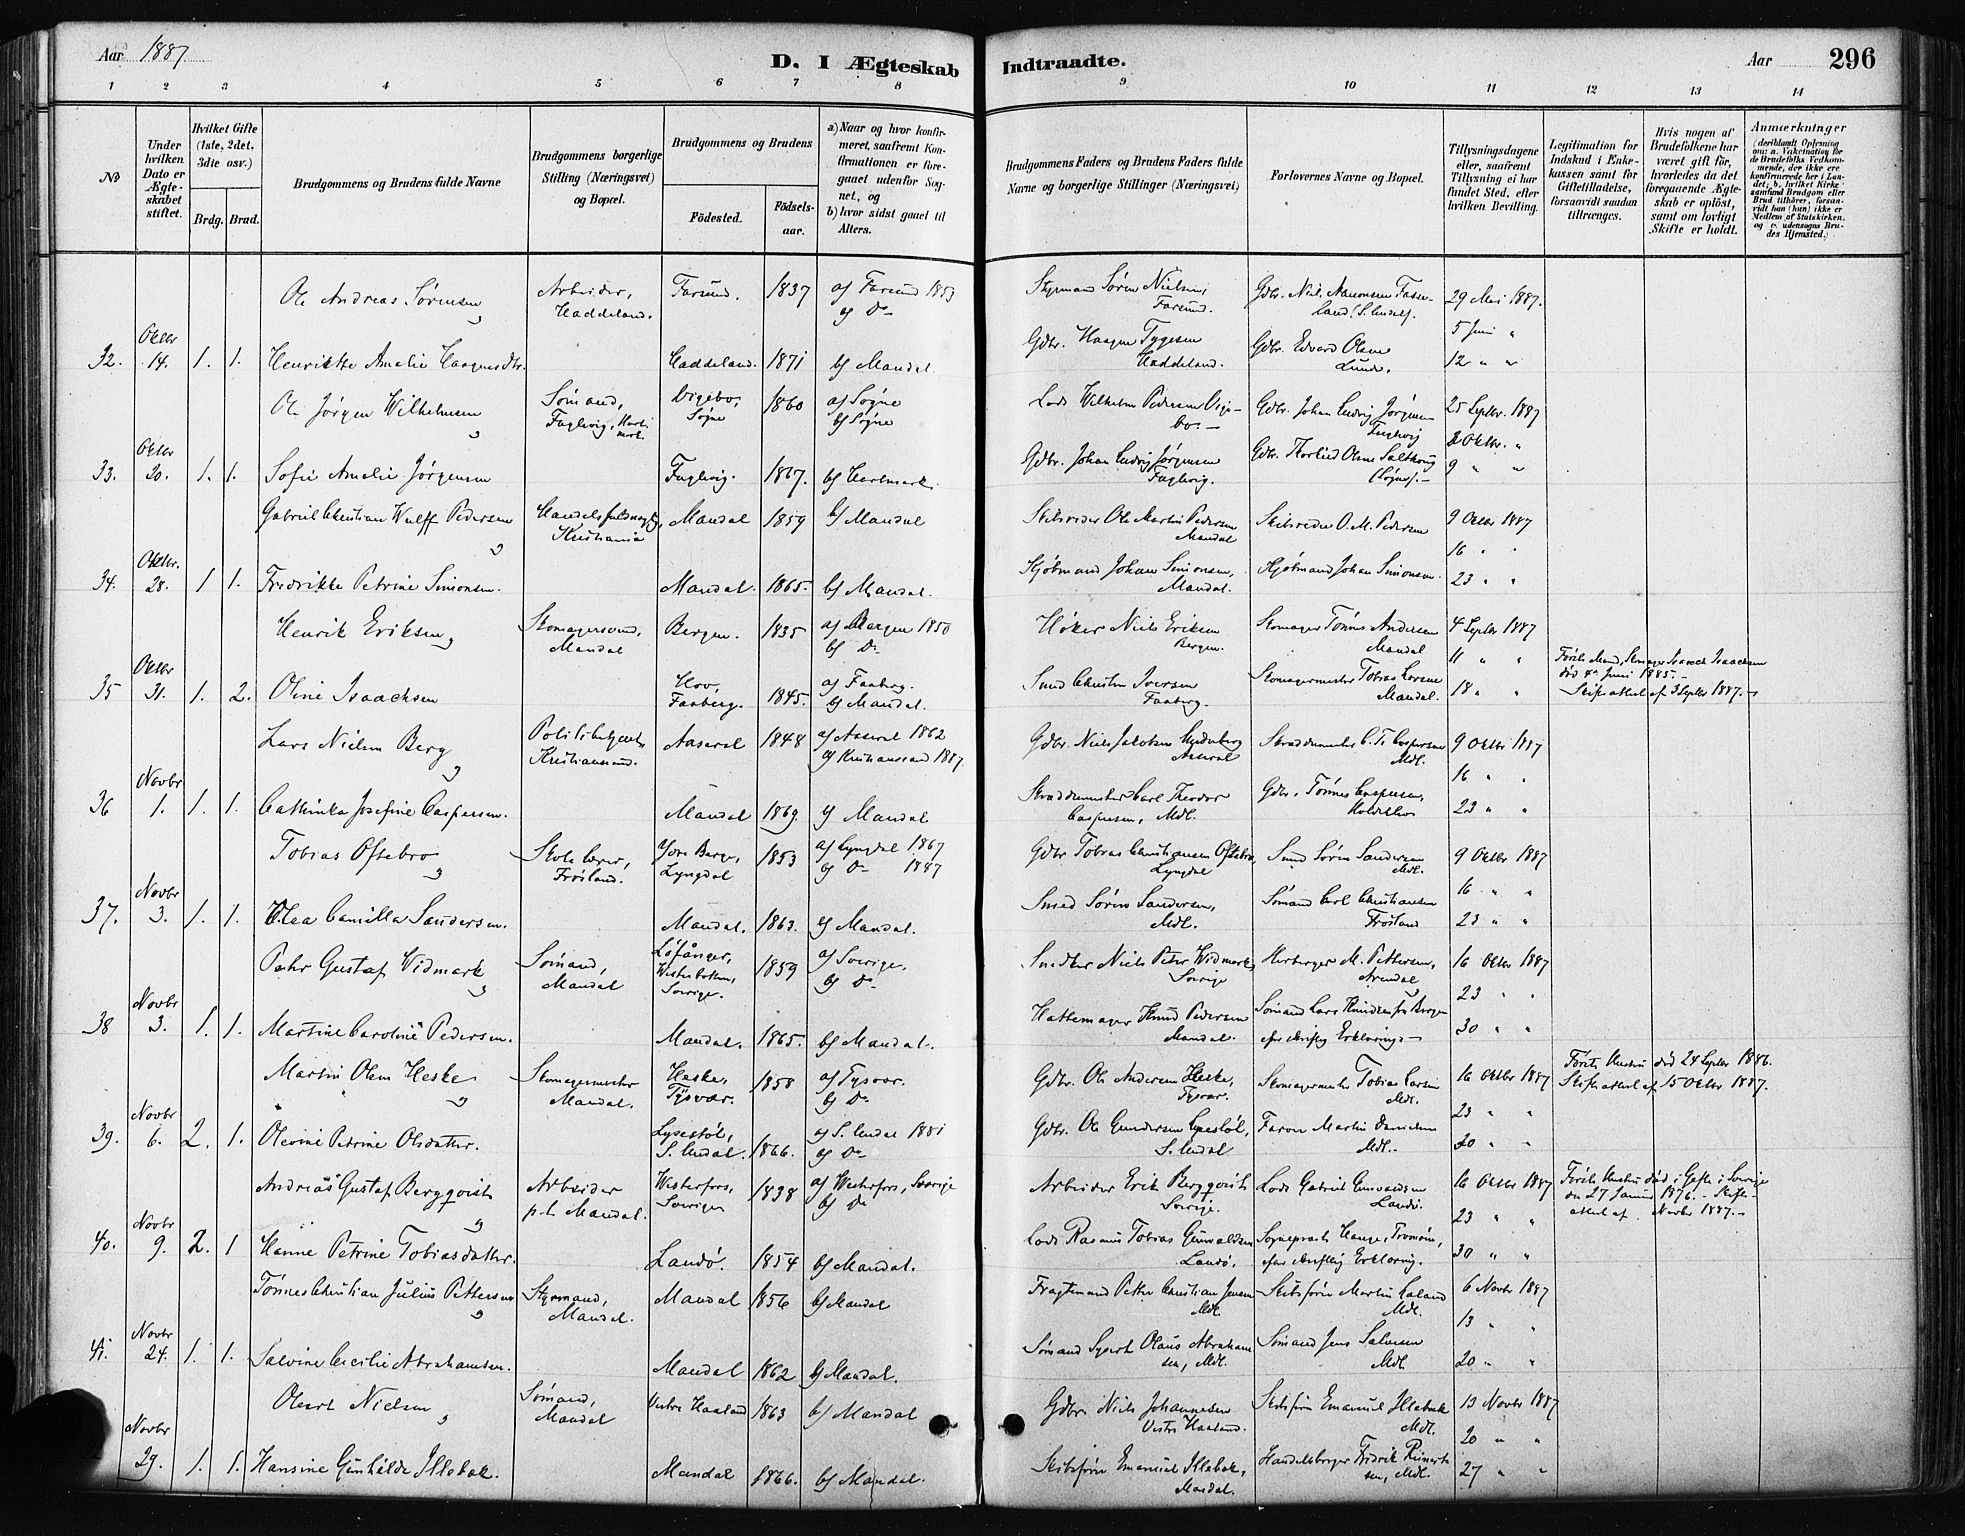 Aar 1887.
D. I Ægteskab
Indtraadte.
Aar
296
1 2 3 4 5 6 7 8 9 10 11 12 13 14
No
Under hvilken Dato er Ægteskabet stiftet.
Hvilket Gifte (1ste, 2det, 3die osv.)
Brdg. Brud.
Brudgommens og Brudens fulde Navne
Brudgommens borgerlige Stilling (Næringsvei) og Bopæl.
Brudgommens og Brudens
Födested.
Födsels-aar.
a) Naar og hvor konfirmeret, saafremt Konfirmationen er foregaaet udenfor Sognet, og
b) hvor sidst gaaet til Alters.
Brudgommens Faders og Brudens Faders fulde Navne og borgerlige Stillinger (Næringsvei)
Forlovernes Navne og Bopæl.
Tillysningsdagene eller, saafremt Tillysning ei har fundet Sted, efter hvilken Bevilling.
Legitimation for Indskud i Enkekassen samt for Giftetilladelse, forsaavidt saadan tiltrænges.
Hvis nogen af Brudefolkene har været gift för, hvorledes da det foregaaende Ægteskab er oplöst, samt om lovligt Skifte er holdt.
Anmærkninger
(deriblandt Oplysning om: a. Vakcination for de Brudefolks Vedkommende, der ikke ere konfirmerede her i Landet; b. hvilket Kirkesamfund Brudgom eller Brud tilhörer, forsaavidt han (hun) ikke er Medlem af Statskirken, og c. udensogns Brudes Hjemsted.)
Ole Andreas Sørensen Arbeider, Haddeland. Farsund. 1837 a/ Farsund 1853 b/ Do Styrmand Søren Nielsen, Farsund. 29 Mai 1887.
5 Juni "
32. Oktbr 14. 1. 1. Henriette Amalie Haagensdtr. Haddeland. 1871 b/ Mandal Gdbr. Haagen Tygesen Haddeland. Gdbr. Edvard Olsen Lunde. 12 " "
Ole Jørgen Wilhelmsen Sømand, Faglevig, Hartmark. Digebo, Søgne 1860 a/ Søgne b/ Søgne Lods Wilhelm Pedersen Digebo. Gdbr. Johan Ludvig Jørgensen Faglevig 25 Septbr. 1887
2 Oktbr. "
33. Oktbr 20. 1. 1. Sofie Amalie Jørgensen Faglevig. 1867. b/ Hartmark. Gdbr. Johan Ludvig Jørgensen Faglevig. (Søgne). 9 " "
Gabriel Christian Wulff Pedersen Handelsfuldmægtig, Kristiania Mandal 1859 b/ Mandal Skibsreder Ole Martin Pedersen Mandal Skibsreder O. M. Pedersen 9 Oktbr 1887
16 " "
34. Oktbr. 28. 1 1. Fredrikke Petrine Simonsen. Mandal. 1865. b/ Mandal. Kjøbmand Johan Simonsen, Mandal. Kjøbmand Johan Simonsen. 23 " "
Henrik Eriksen Skomagersvend, Mandal Bergen. 1835 a/ Bergen 1850 b/ Do Høker Niels Eriksen Bergen. Skomager Tønnes Andersen Mandal 4 Septbr 1887
11 " "
35 Oktbr 31. 1. 2. Oline Isaachsen Hov, Faaberg. 1845. a/ Faaberg. b/ Mandal. Smed Christen Iversen Faaberg. Skomagermester Tobias Larsen Mandal. 18 " " Første Mand, Skomager Isaach Isaachsen død 4de Juni 1885. Skifteattest af 3 Septbr 1887.
Lars Nielsen Berg Politibetjent, Kristianssand. Aaseral 1848 a/ Aaseral 1862 b/ Kristianssand 1887. Gdbr. Niels Jakobsen Aaseral Skræddermester C. T. Caspersen Mdl. 9 Oktbr 1887
16 " "
36 Novbr 1. 1. 1. Cathinka Josefine Caspersen. Mandal 1869. b/ Mandal Skræddermester Carl Theodor Caspersen, Mdl. Gdbr. Tønnes Caspersen, 23 " "
Tobias Oftebro Skolelærer, Frøsland. Berge, Lyngdal 1853 a/ Lyngdal 1867 b/ Do 1887 Gdbr Tobias Christiansen Oftebro, Lyngdal Smed Søren Sandersen Mdl. 9 Oktbr 1887
16 " "
37. Novbr 3. 1. 1. Thea Camilla Sandersen. Mandal. 1863. b/ Mandal. Smed Søren Sandersen, Mdl. Sømand Carl Christiansen Frøsland 23 " "
Pehr Gustaf Widmark Sømand, Mandal Löfånger, Westerbotten, Sverige. 1859 a/ Sverige. b/ Do Niels Peter Widmark, Sverige Herberger M. Pettersen, Arendal 16 Oktbr 1887
23 " "
38 Novbr 3. 1. 1. Martine Caroline Pedersen. Mandal. 1865. b/ Mandal. Hattemager Knud Pedersen Mandal. Sømand Lars Knudsen fra Bergen efter skriftlig Erklæring. 30 " "
Martin Olsen Heske Skomagermester Mandal. Heske, Tysvær. 1858 a/ Tysvær. b/ Do Gdbr. Ole Andersen Heske, Tysvær. Skomagermester Tobias Larsen Mdl. 16 Oktbr 1887 Første Hustru død 24 Septbr 1886. Skifteattest af 15 Oktbr 1887.
23 " "
39. Novbr 6. 2. 1. Olevine Petrine Olsdatter. Lysestøl, S. Undal. 1866. a/ S. Undal 1881 b/ Do Gdbr. Ole Gundersen Lysestøl, S. Undal Farver Martin Danielsen Mdl. 30 " "
Andreas Gustaf Bergqvist Arbeider p.t. Mandal. Westerfors, Sverige 1838 a/ Westerfors, Sverige b/ Do Arbeider Erik Bergqvist Sverige. Lods Gabriel Gunvaldsen Landø. 16 Oktbr 1887 Første Hustru død i Gefle i Sverige den 27 Januar 1876. Skifteattest af Novbr 1887.
23 " "
40. Novbr 9. 2. 1 Hanne Petrine Tobiasdatter. Landø. 1854 b/ Mandal. Lods Rasmus Tobias Gunvaldsen Landø. Sogneprest Hauge, Tromøen, efter skriftlig Erklæring. 30 " "
Tønnes Christian Julius Pettersen Styrmand, Mandal. Mandal 1856 b/ Mandal Fragtemand Petter Christian Jensen Mdl. Skibsfører Martin Laland Mdl. 6 Novbr 1887
13 " "
41. Novbr 24. 1. 1. Salvine Cecilie Abrahamsen. Mandal 1862 b/ Mandal. Sømand Syvert Olaus Abrahamsen, Mdl. Sømand Jens Salvesen Mdl 20 " "
Oluert Nielsen Sømand, Mandal Vestre Haaland 1863 b/ Mandal Gdbr. Niels Johannesen Vestre Haaland. Skibsfører Emanuel Illebæk Mdl. 13 Novbr 1887
20 " "
Novbr 29. 1. 1. Hansine Gunhilde Illebæk. Mandal 1866. b/ Mandal. Skibsfører Emanuel Illebæk, Mandal. Handelsborger Fredrik Reinertsen, Mdl. 27 " "